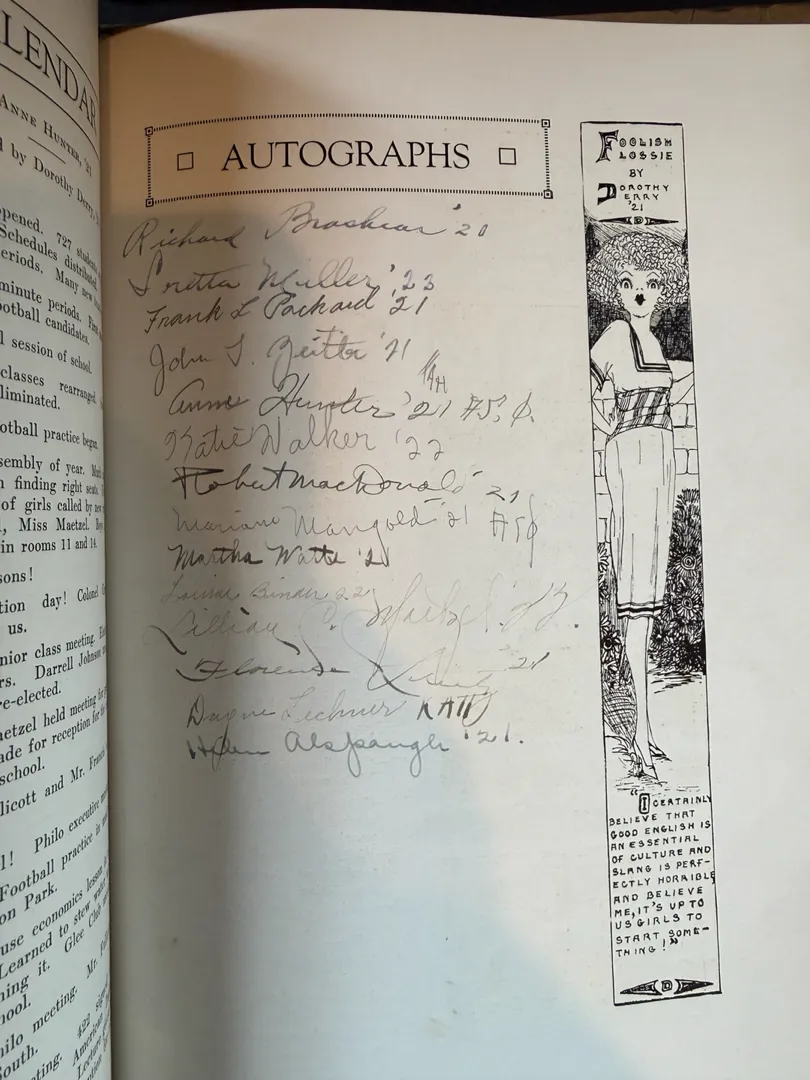 LENDAR
ANNE HUNTER, '21
d by Dorothy Derry,
pened. 727
Schedules distributed
eriods. Many new
minute periods.
ootball candidates.
l session of school.
classes rearranged.
liminated.
ootball practice began.
sembly of year.
n finding right seats.
of girls called by
l, Miss Maetzel.
in rooms 11 and 14.
sons!
tion day! Colonel
us.
nior class meeting.
rs. Darrell Johnson
e-elected.
aetzel held meeting for
ade for reception for the
school.
licott and Mr. Francis
l! Philo executive
Football practice in
on Park.
use economics lesson
Learned to stew
ning it. Glee Club
ool.
hilo meeting. Mr.
South.
eting. 422
American
Lecture
AUTOGRAPHS
Richard Brashear '20
Loretta Muller '23
Frank L Packard '21
John J. '21
Anne Hunter '21
Katie Walker '22
Robert MacDonald 21
Mariane Mangold '21
Martha Watts '21
Louise Binder 22
Lillian C.
Florence '21
Dagne Lechner
Helen Alspaugh '21.
FOOLISH
FLOSSIE
BY
DOROTHY
DERRY
'21
D
"I CERTAINLY
BELIEVE THAT
GOOD ENGLISH IS
AN ESSENTIAL
OF CULTURE AND
SLANG IS PERF-
ECTLY HORRIBLE
AND BELIEVE
ME, IT'S UP TO
US GIRLS TO
START SOME-
THING!"
D